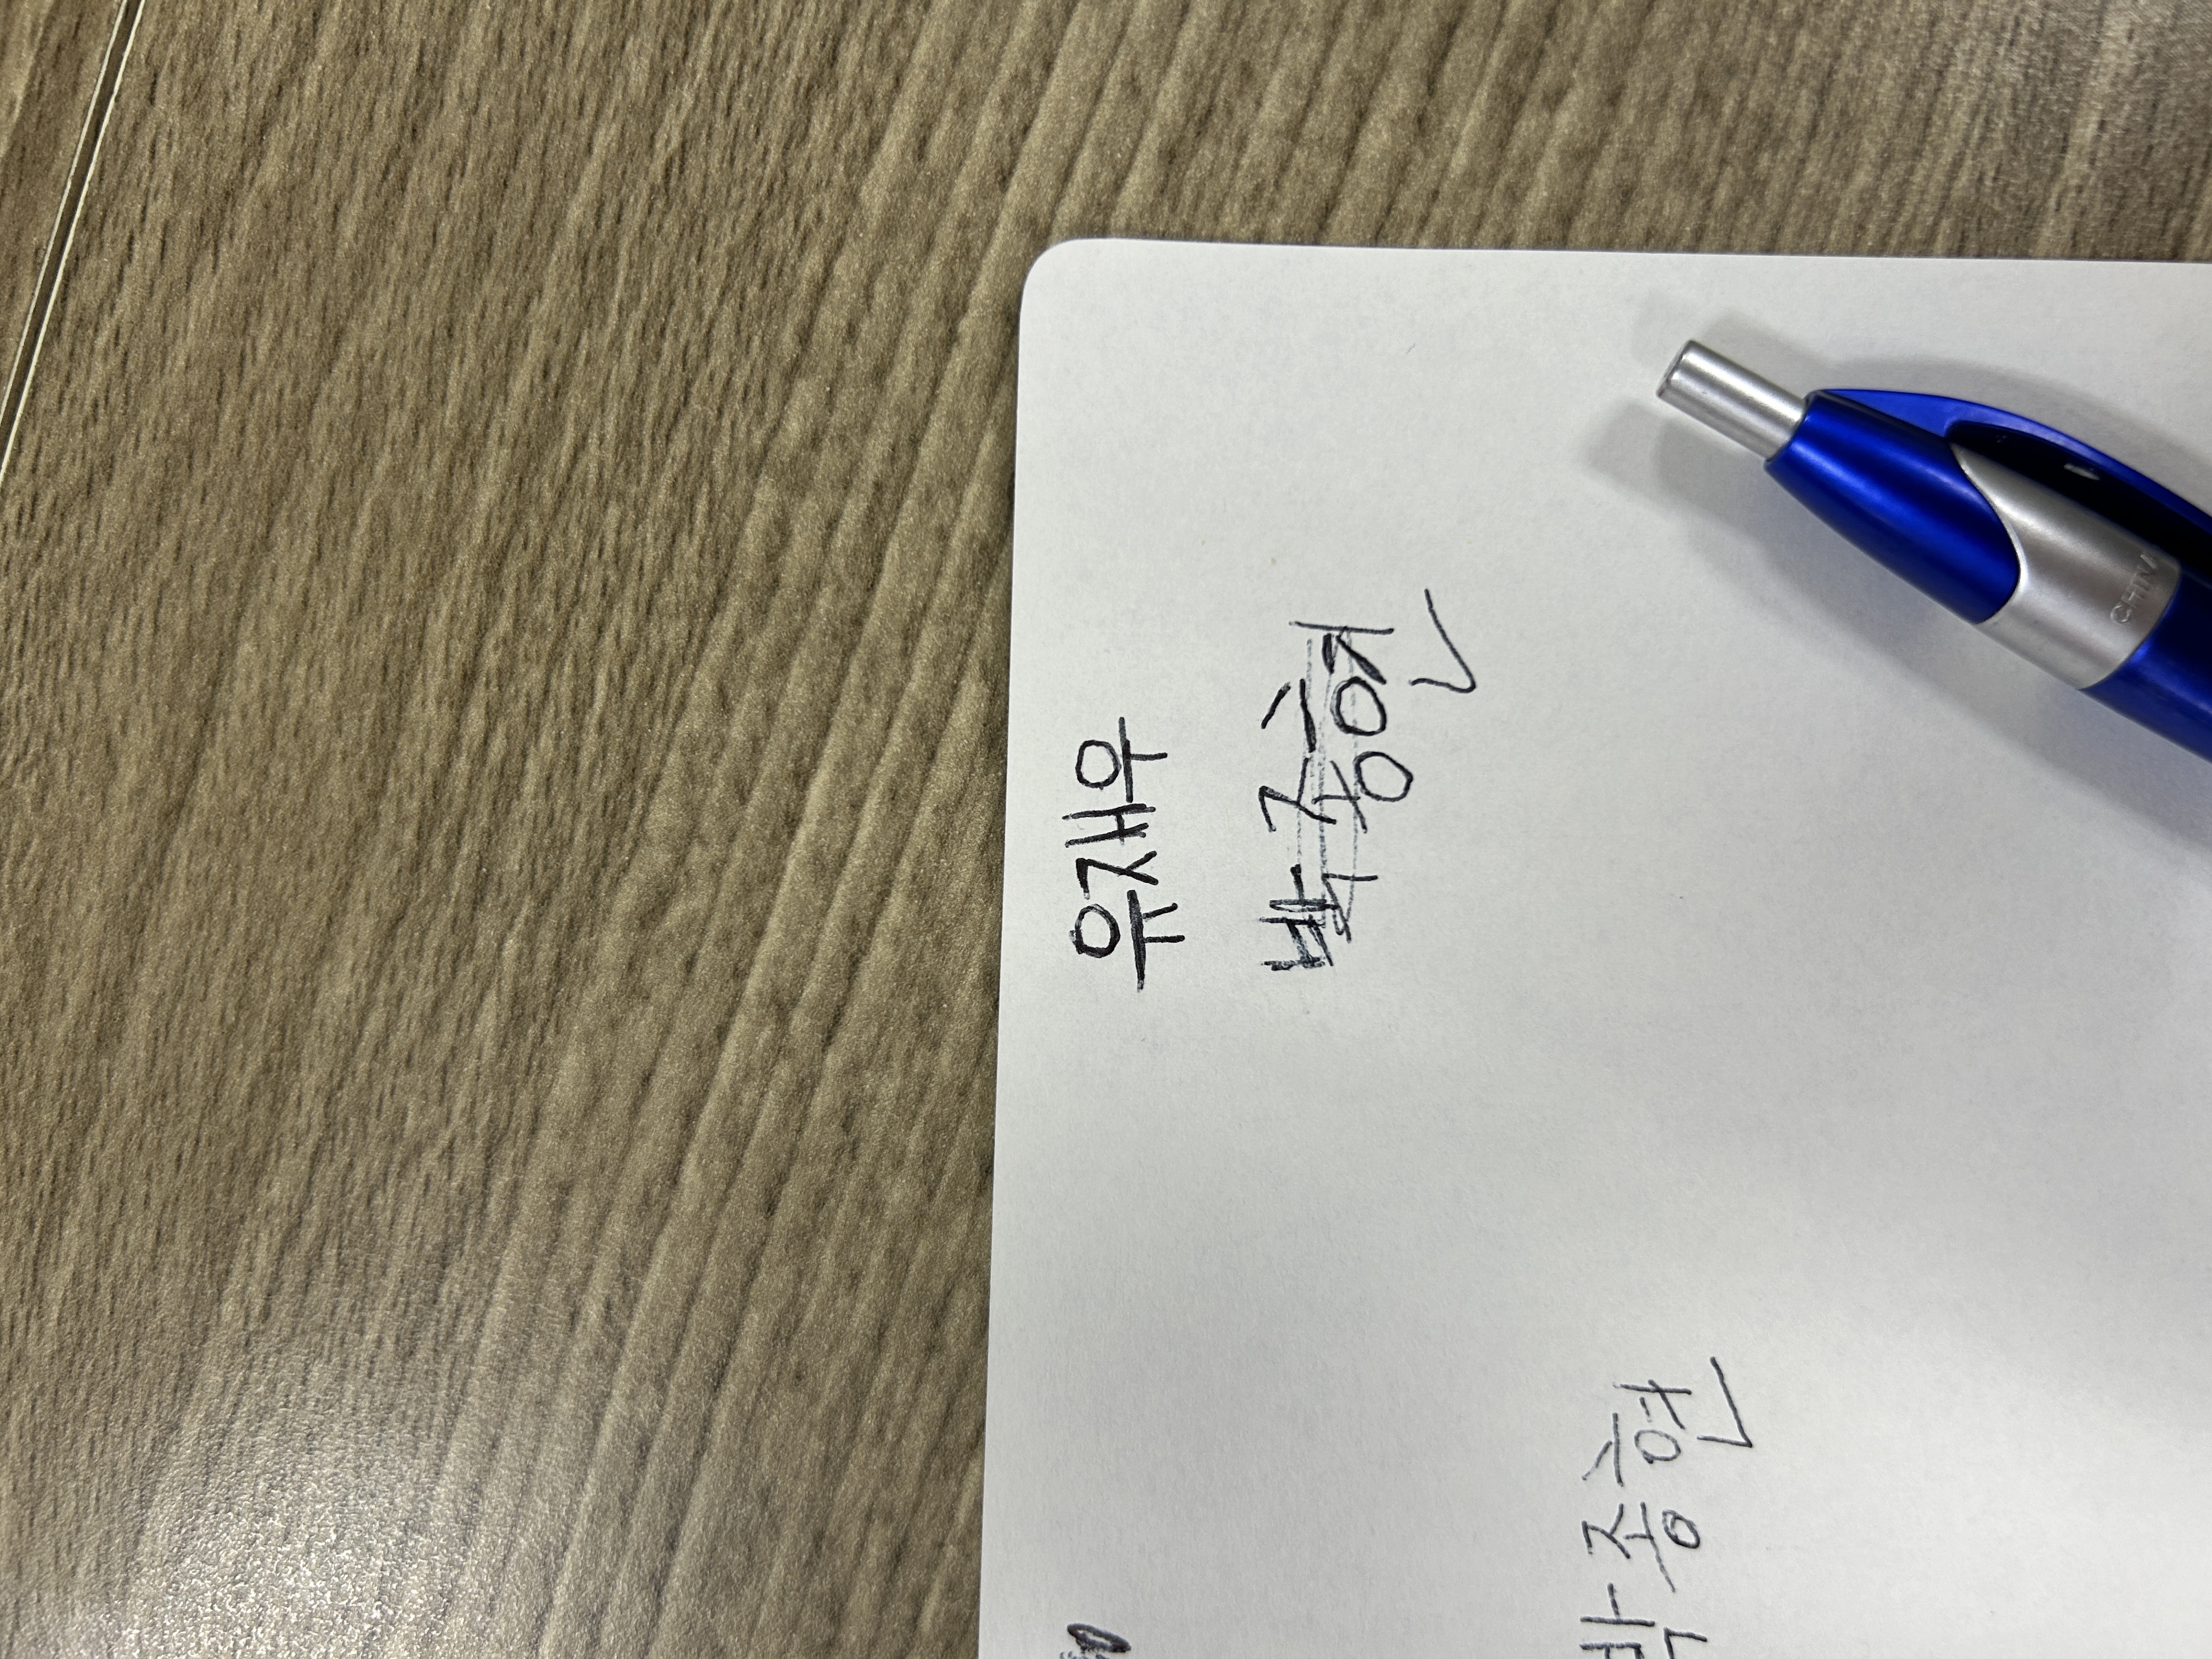 유재우
박종현
박종현
CHINA